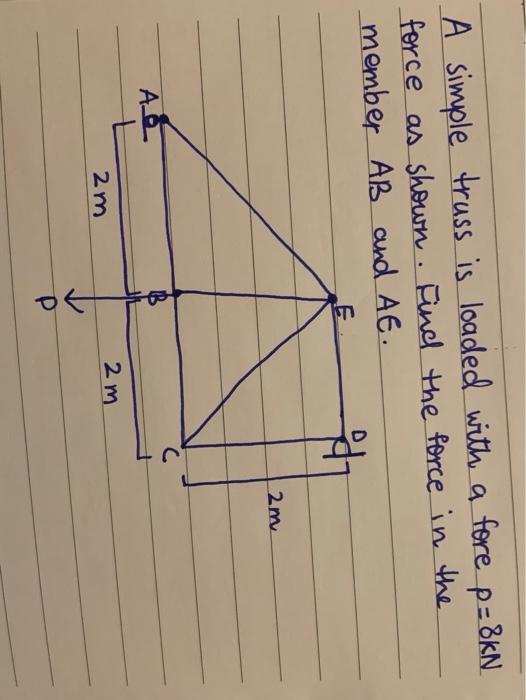 A simple truss is loaded with a fore p=8kN
force as shown. Find the force in the
member AB and AE.
E
D
2m
A
B
C
2m
2m
P